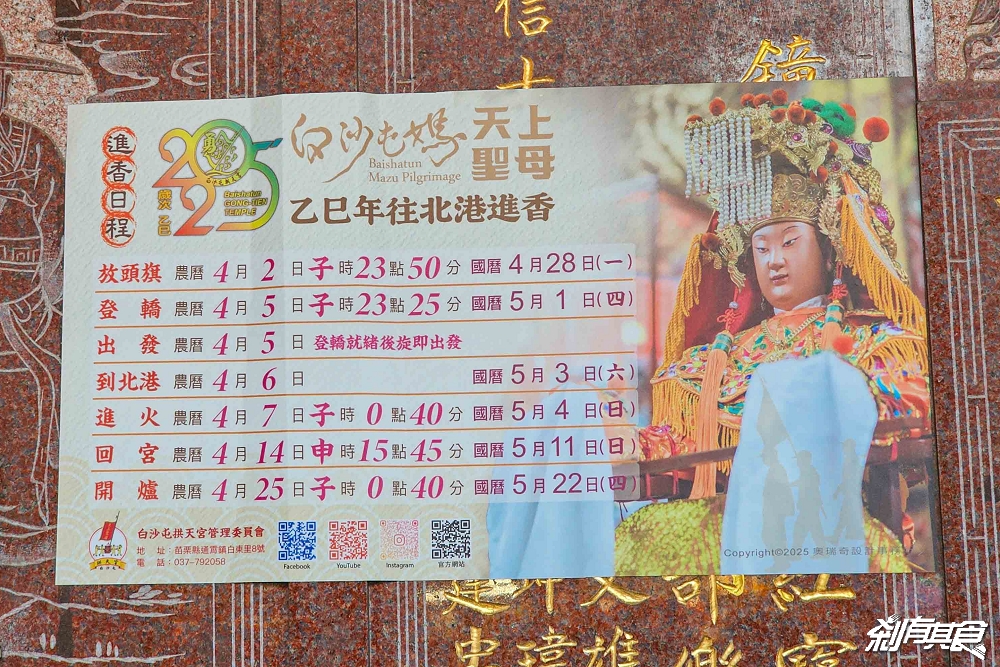 信
士
鐘
進香日程
2025
歲次乙巳
Baishatun
GONG-TIEN
TEMPLE
白沙屯媽
Baishatun
Mazu Pilgrimage
天上
聖母
乙巳年往北港進香
放頭旗 農曆4月2日子時23點50分 國曆4月28日(一)
登轎 農曆4月5日子時23點25分 國曆5月1日(四)
出發 農曆4月5日 登轎就緒後旋即出發
到北港 農曆4月6日 國曆5月3日(六)
進火 農曆4月7日子時0點40分 國曆5月4日(日)
回宮 農曆4月14日申時15點45分 國曆5月11日(日)
開爐 農曆4月25日子時0點40分 國曆5月22日(四)
白沙屯拱天宮管理委員會
地址:苗栗縣通霄鎮白東里8號
電話:037-792058
Facebook
YouTube
Instagram
官方網站
Copyright©2025 奧瑞奇設計
剎有其食